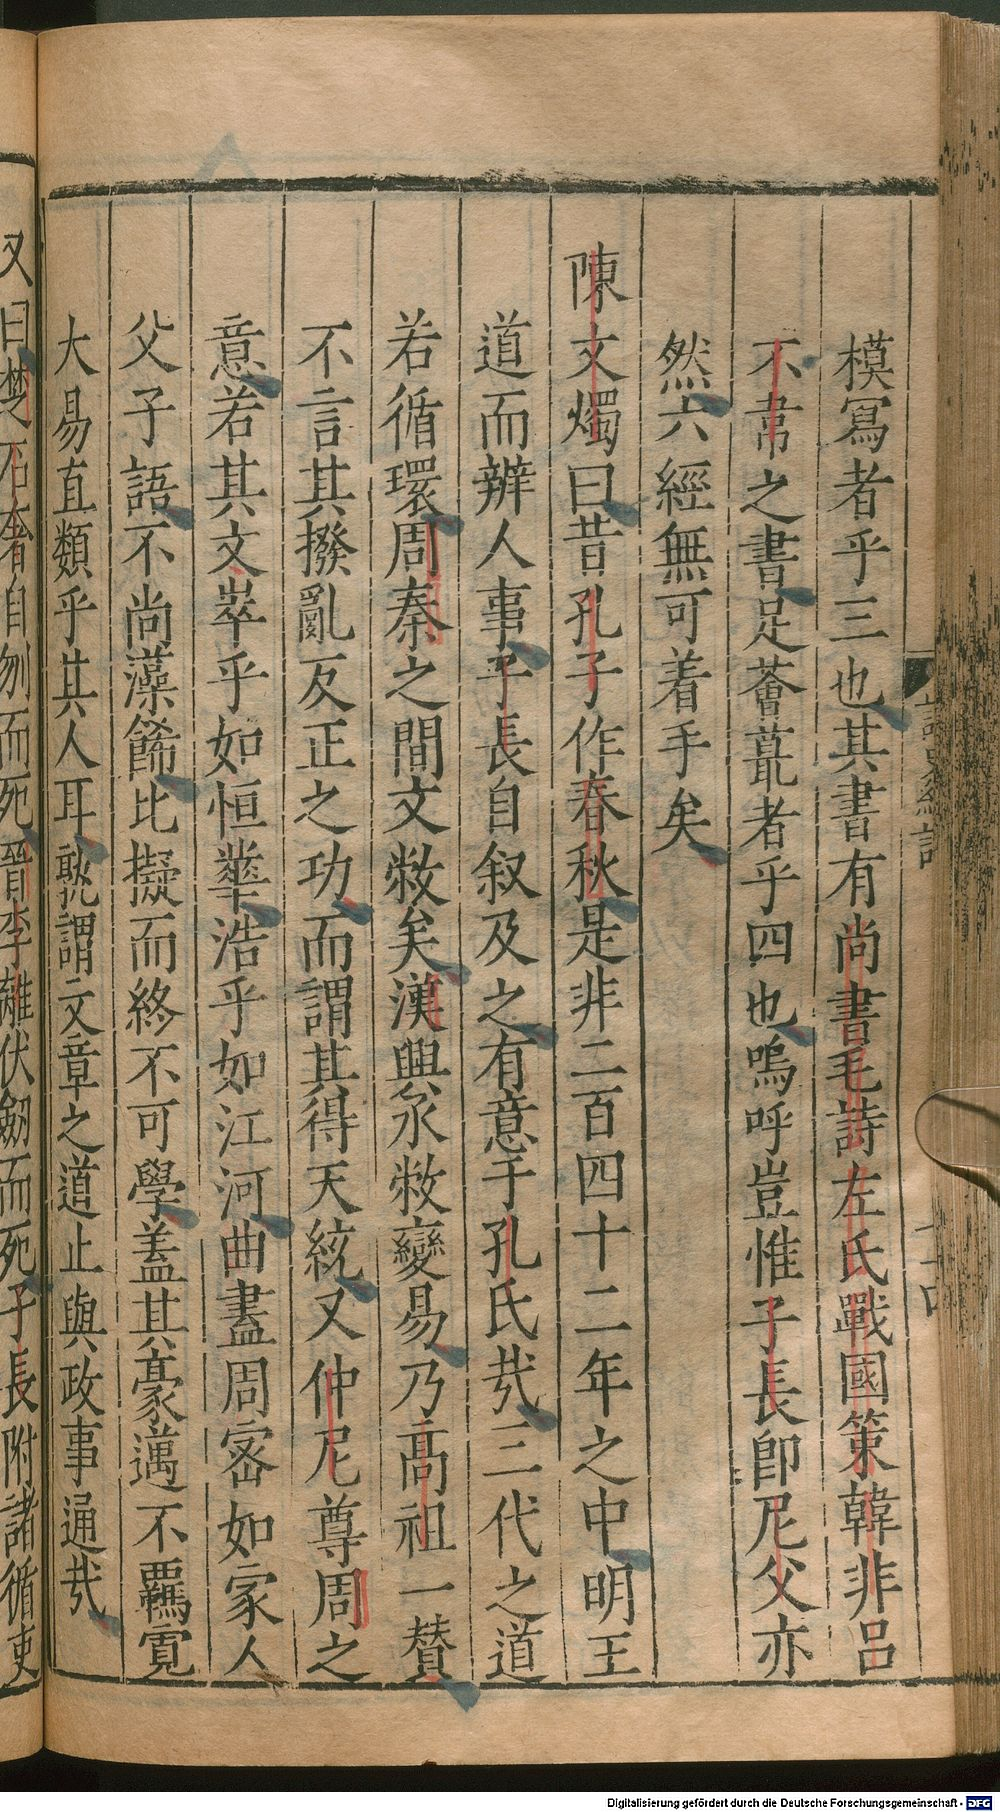 模冩者乎三也其書有尚書毛詩左氏戰國策韓非吕
不韋之書足薈蕞者乎四也嗚呼豈惟子長卽尼父亦
然六經無可着手矣
陳文燭曰昔孔子作春秋是非二百四十二年之中明王
道而辨人事子長自叙及之有意于孔氏㢤三代之道
若循環周秦之間文敝矣漢興承敝變易乃高祖一賛
不言其撥亂反正之功而謂其得天統又仲尼尊周之
意若其文崒乎如恒華浩乎如江河曲盡周宻如家人
父子語不尚藻餙比擬而終不可學盖其豪邁不羈寛
大易直類乎其人耳孰謂文章之道止與政事通㢤
又曰楚石奢自刎而死晉李離伏劒而死子長附諸循吏
Digitalisierung gefördert durch die Deutsche Forschungsgemeinschaft - DFG